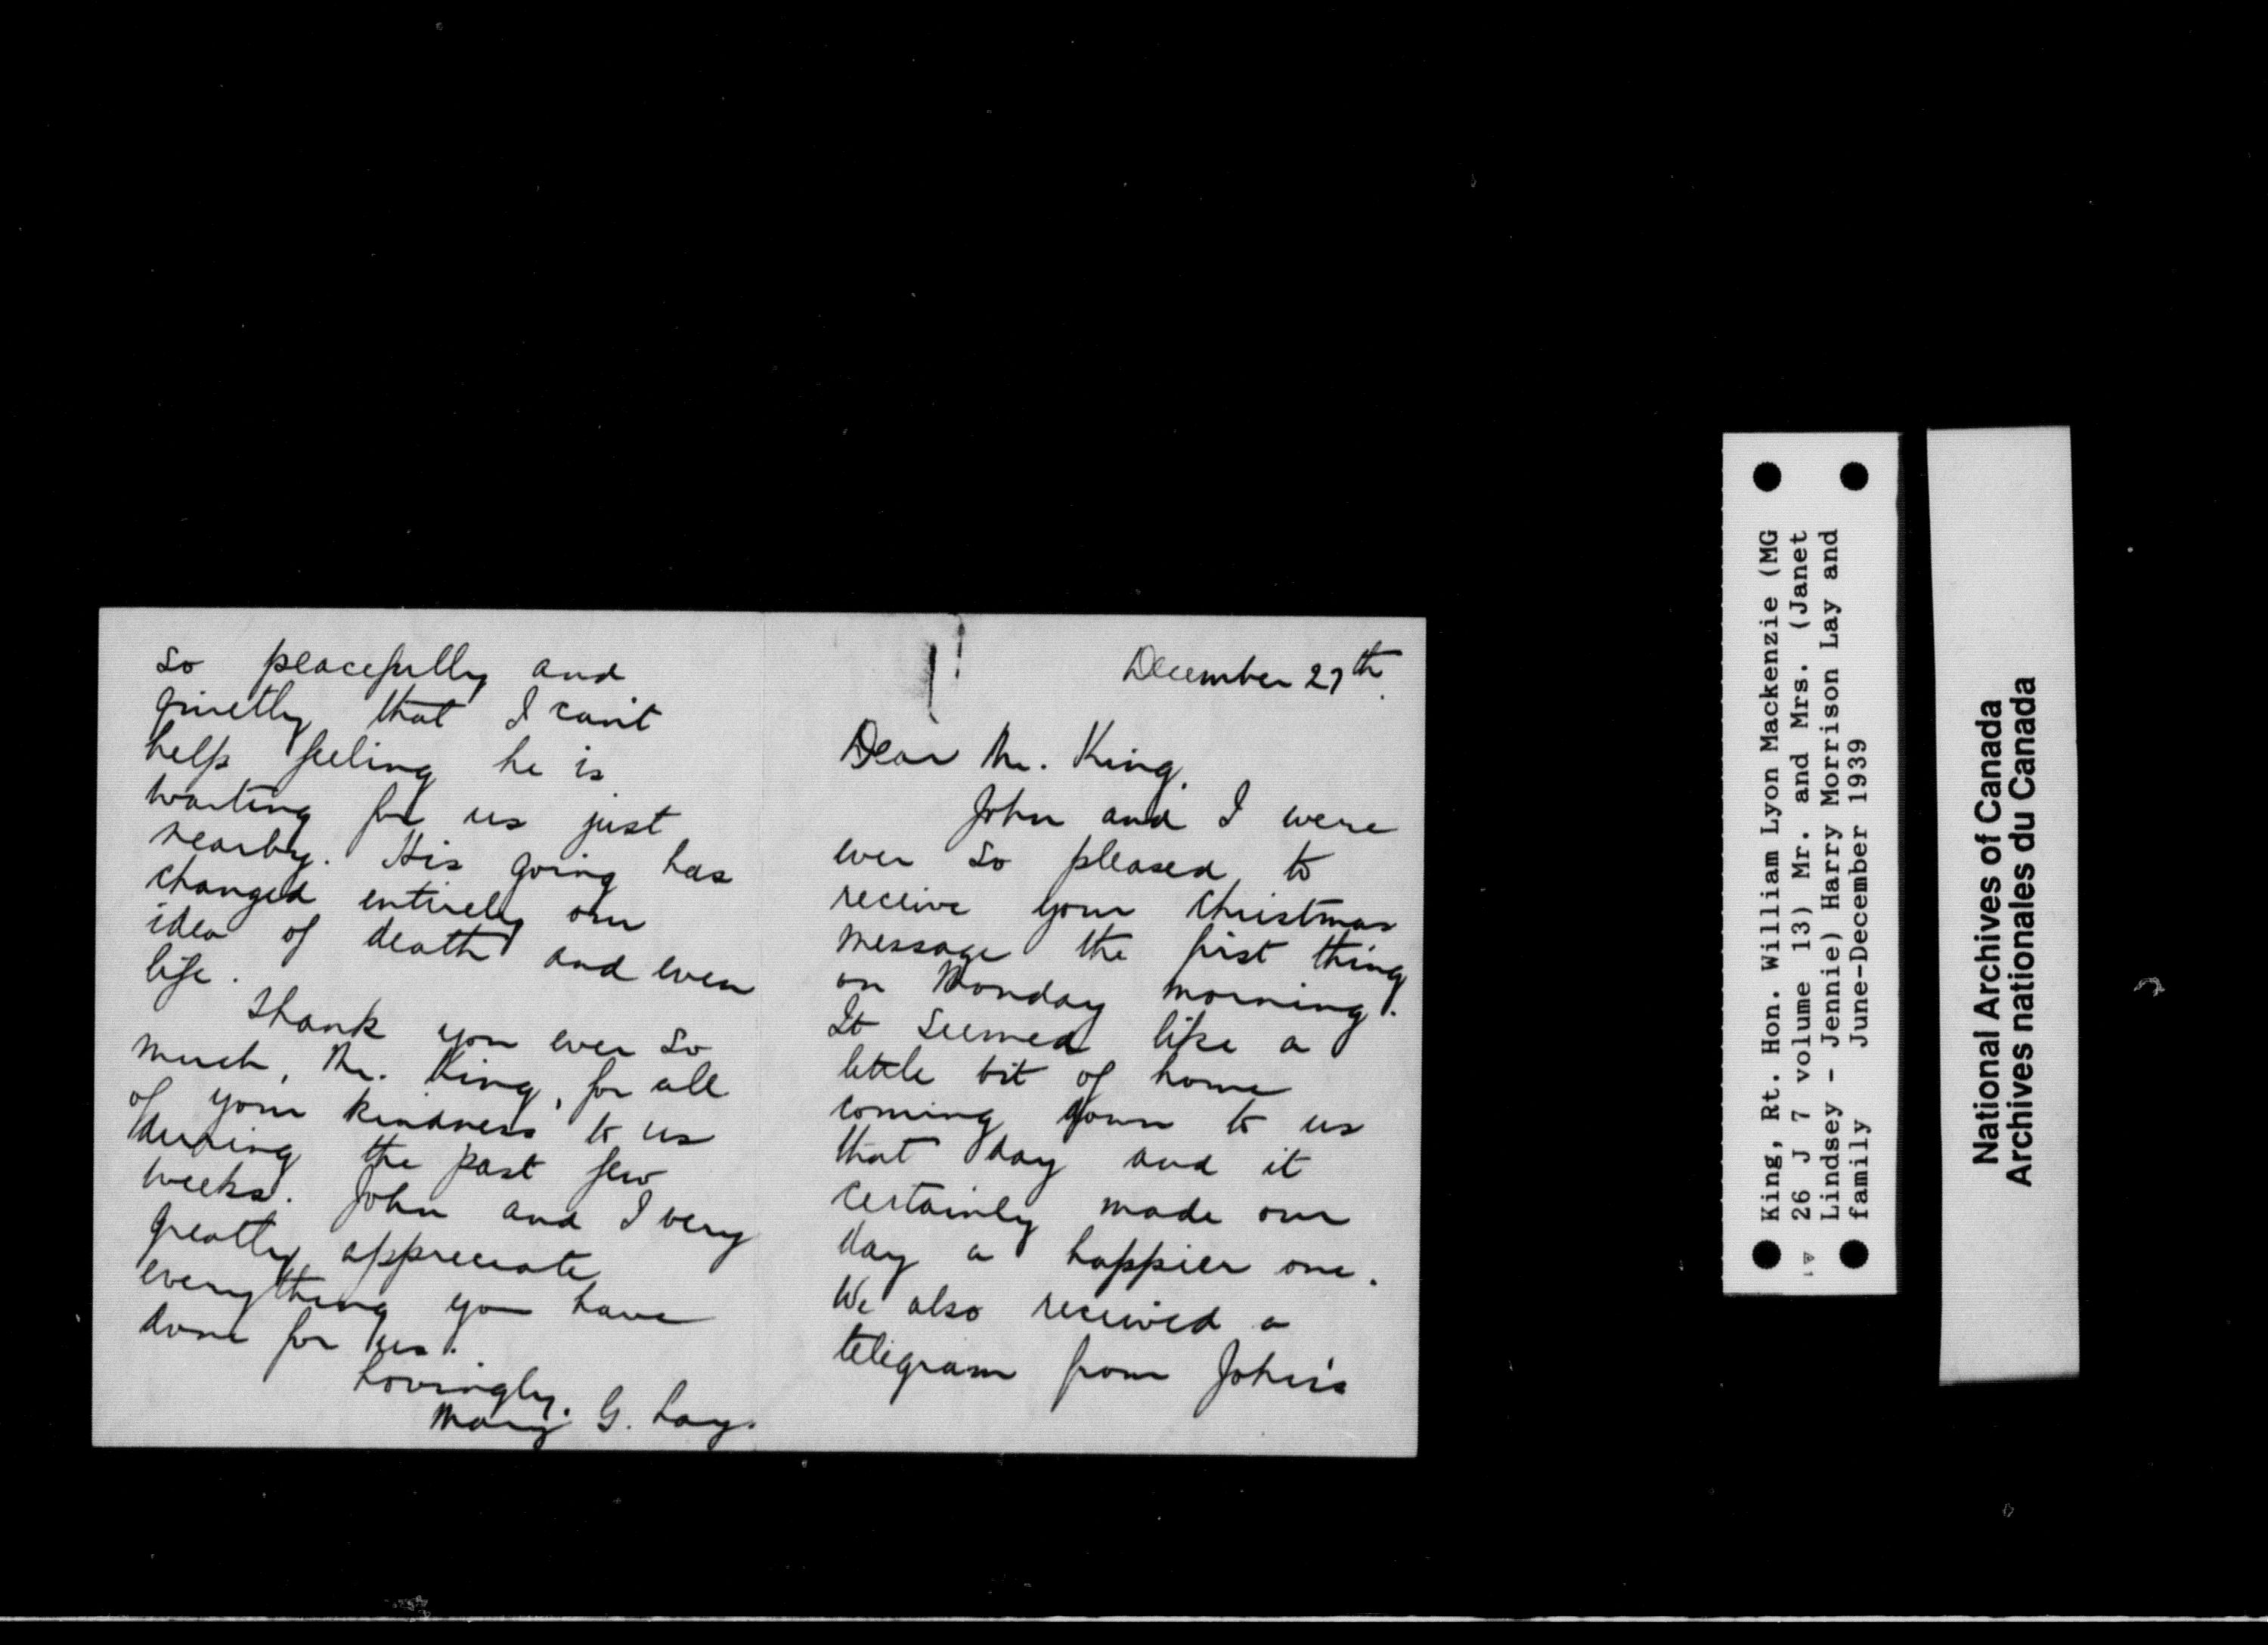 so peacefully and
quietly that I can't
help feeling he is
waiting for us just
nearby. His going has
changed entirely our
idea of death and even
life.
Thank you ever so
much, Mr. King, for all
of your kindness to us
during the past few
weeks. John and I very
greatly appreciate
everything you have
done for us.
Lovingly.
Mary G. Lay.
December 27th.
Dear Mr. King,
John and I were
ever so pleased to
receive your Christmas
message the first thing
on Monday morning.
It seemed like a
little bit of home
coming down to us
that day and it
certainly made our
day a happier one.
We also received a
telegram from John's
King, Rt. Hon. William Lyon Mackenzie (MG
26 J 7 volume 13) Mr. and Mrs. (Janet
Lindsey - Jennie) Harry Morrison Lay and
family June-December 1939
National Archives of Canada
Archives nationales du Canada